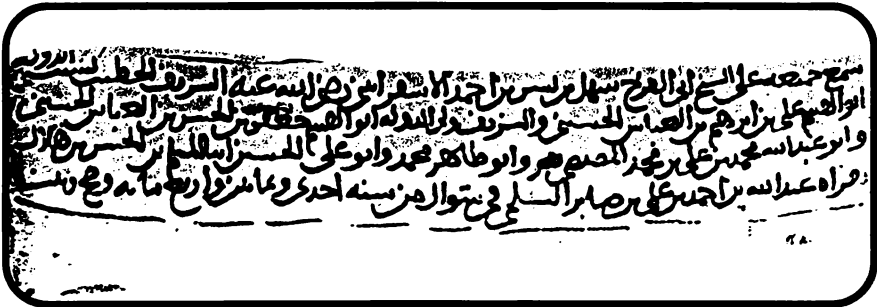 سمع جميعه على الشيخ ابي الفرج سهل بن بشر بن احمد الاسفرايني رضي الله عنه الشريف الخطيب نسيب الدولة
ابو القسم علي بن ابرهيم بن العباس الحسيني والشريف ولي الدولة ابو القسم بن الحسن بن العباس الحسيني
وابو عبد الله محمد بن علي بن محمد المصيصي وابو طاهر محمد وابو علي الحسن ابنا المسلم بن الحسن بن هلال
بقراه عبد الله بن احمد بن علي بن صابر السلمي في شوال من سنه احدى وثمانين واربع مايه